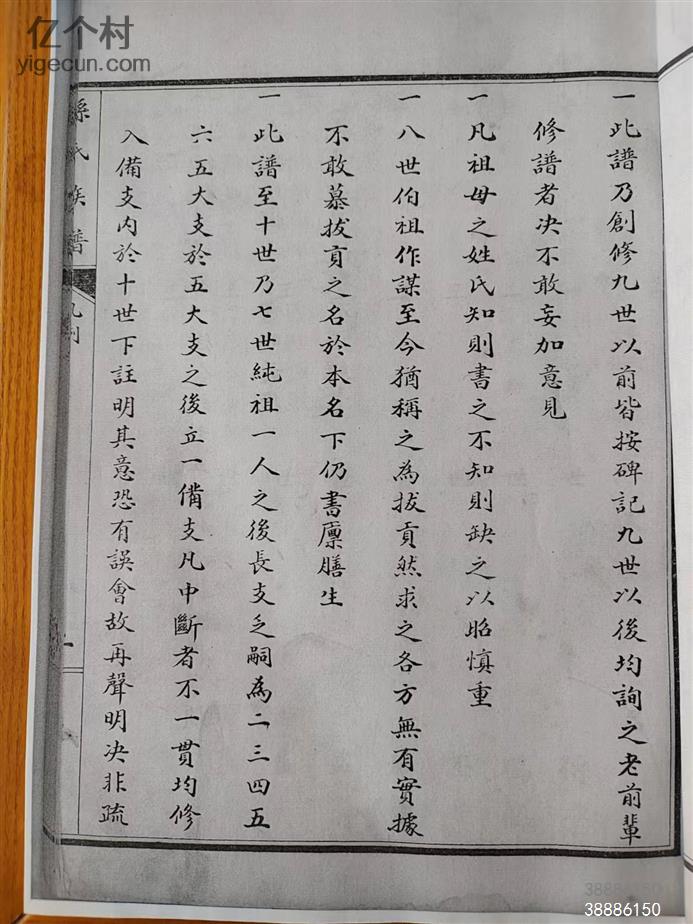 亿个村
yigecun.com
一此譜乃創修九世以前皆按碑記九世以後均詢之老前輩
修譜者决不敢妄加意見
一凡祖母之姓氏知則書之不知則缺之以昭慎重
一八世伯祖作謀至今猶稱之為拔貢然求之各方無有實據
不敢慕拔貢之名於本名下仍書廪膳生
一此譜至十世乃七世純祖一人之後長支乏嗣為二三四五
六五大支於五大支之後立一備支凡中斷者不一貫均修
入備支内於十世下註明其意恐有誤會故再聲明决非疏
孫氏族譜
凡例
38886150